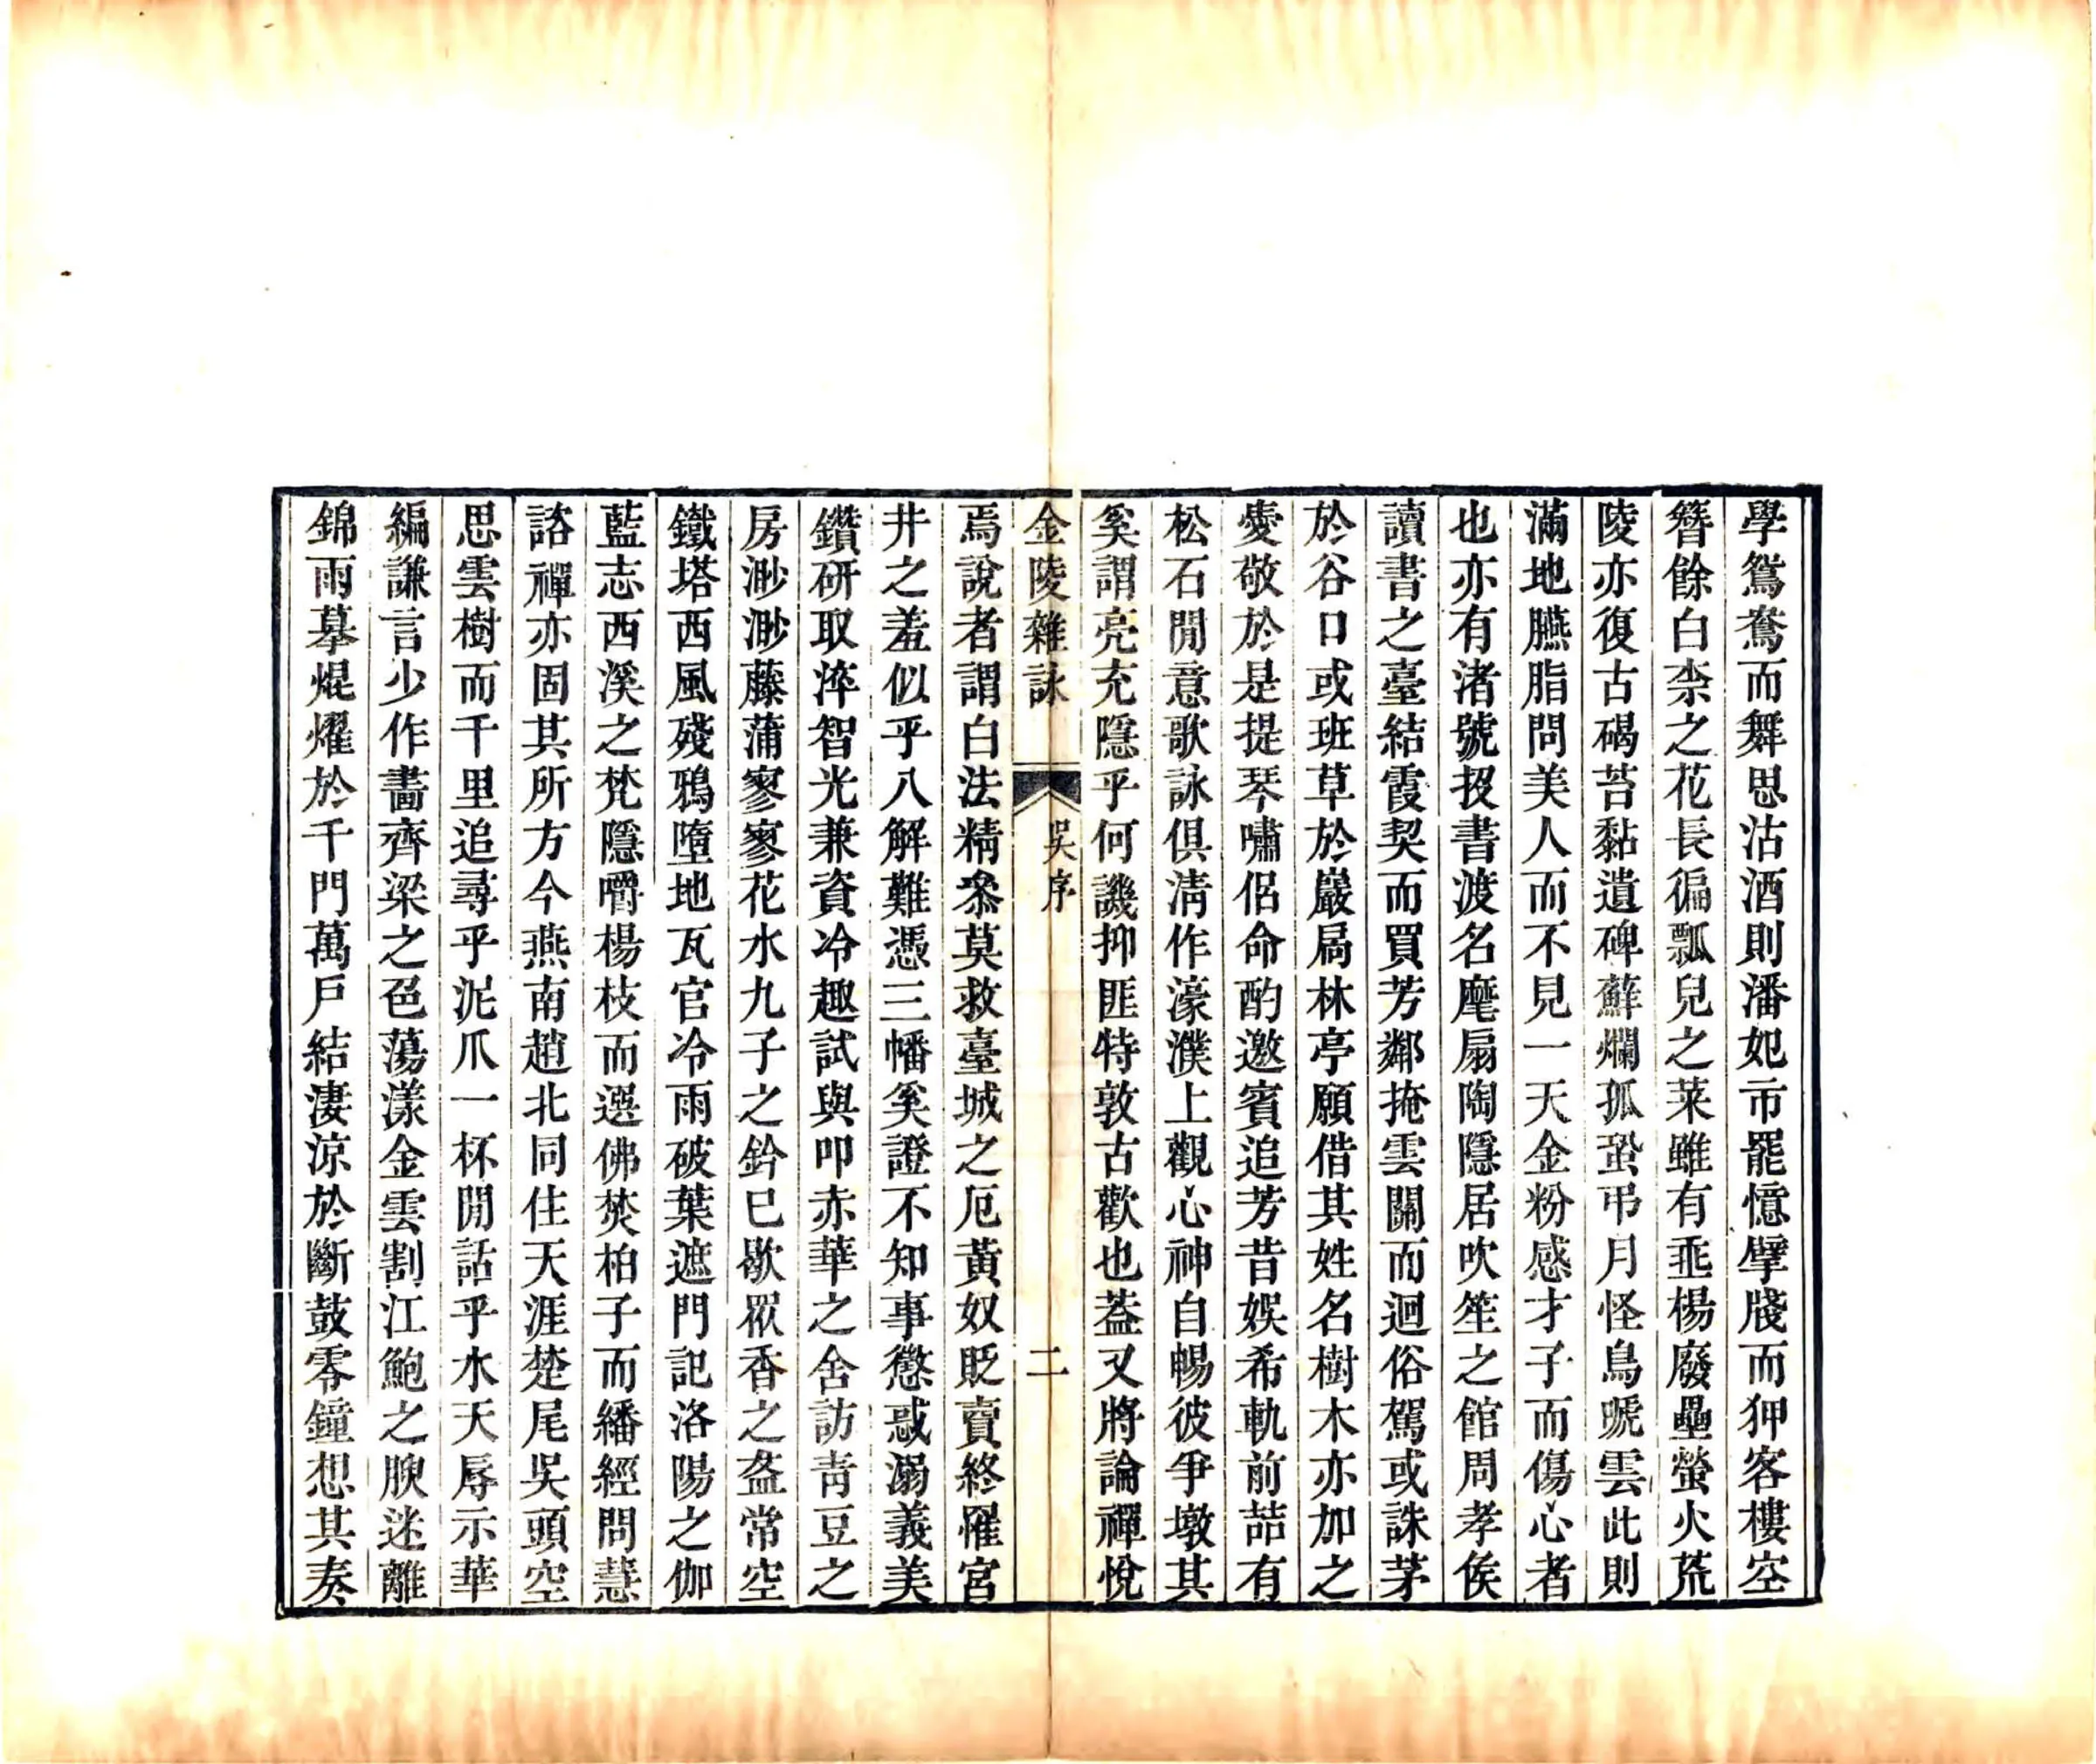 學鴛鴦而舞思沽酒則潘妃市罷憶擘牋而狎客樓空
簪餘白柰之花長徧瓢兒之菜雖有垂楊廢壘螢火荒
陵亦復古碣苔黏遺碑蘚爛孤蛩弔月怪鳥號雲此則
滿地臙脂問美人而不見一天金粉感才子而傷心者
也亦有渚號投書渡名麾扇陶隱居吹笙之館周孝侯
讀書之臺結霞契而買芳鄰掩雲關而迴俗駕或誅茅
於谷口或班草於巖扃林亭願借其姓名樹木亦加之
愛敬於是提琴嘯侶命酌邀賓追芳昔娛希軌前喆有
松石閒意歌詠俱淸作濠濮上觀心神自暢彼爭墩其
奚謂亮充隱乎何譏抑匪特敦古歡也葢又將論禪悅
金陵雜詠 吳序 二
焉說者謂白法精叅莫救臺城之厄黃奴貶賣終罹宮
井之羞似乎八解難憑三幡奚證不知事懲惑溺義美
鑽研取滓智光兼資冷趣試與叩赤華之舍訪靑豆之
房渺渺藤蒲寥寥花水九子之鈴已歇眾香之盋常空
鐵塔西風殘鴉墮地瓦官冷雨破葉遮門記洛陽之伽
藍志西溪之梵隱嚼楊枝而選佛焚柏子而繙經問慧
諮禪亦固其所方今燕南趙北同住天涯楚尾吳頭空
思雲樹而千里追尋乎泥爪一杯閒話乎水天辱示華
編謙言少作畵齊梁之色蕩漾金雲割江鮑之腴迷離
錦雨摹焜燿於千門萬戶結淒涼於斷鼓零鐘想其奏